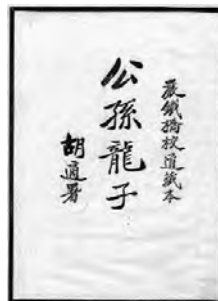 嚴鐵橋校道藏本
公孫龍子
胡適署